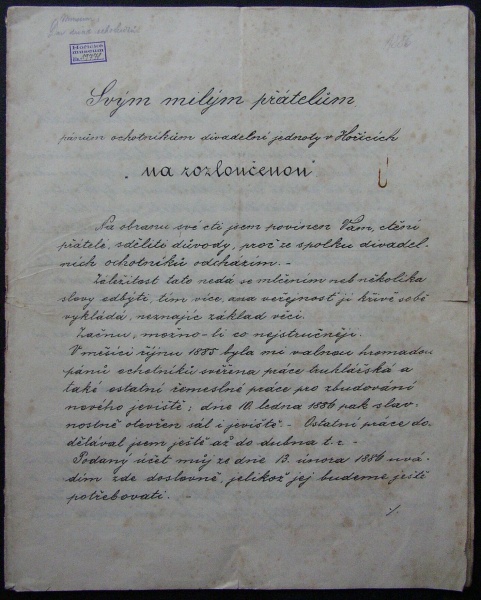 Svým milým přátelům,
pánům ochotníkům divadelní jednoty v Hořicích
„na rozloučenou"
Na obranu své cti jsem povinen Vám, ctění
přátelé, sděliti důvody, proč ze spolku divadel-
ních ochotníků odcházím. –
Záležitost tato nedá se mlčením neb několika
slovy odbýti, tím více, ana veřejnost ji křivě sobě
vykládá, neznajíc základ věci.
Začnu, možno-li co nejstručněji.
V měsíci říjnu 1885 byla mě valnou hromadou
pánů ochotníků svěřena práce truhlářská a
také ostatní řemeslné práce pro zbudování
nového jeviště; dne 10. ledna 1886 pak slav-
nostně otevřen sál i jeviště. – Ostatní práce do-
dělával jsem ještě až do dubna t. r. –
Podaný účet můj ze dne 13. února 1886 uvá-
dím zde doslovně, jelikož jej budeme ještě
potřebovati.
./.